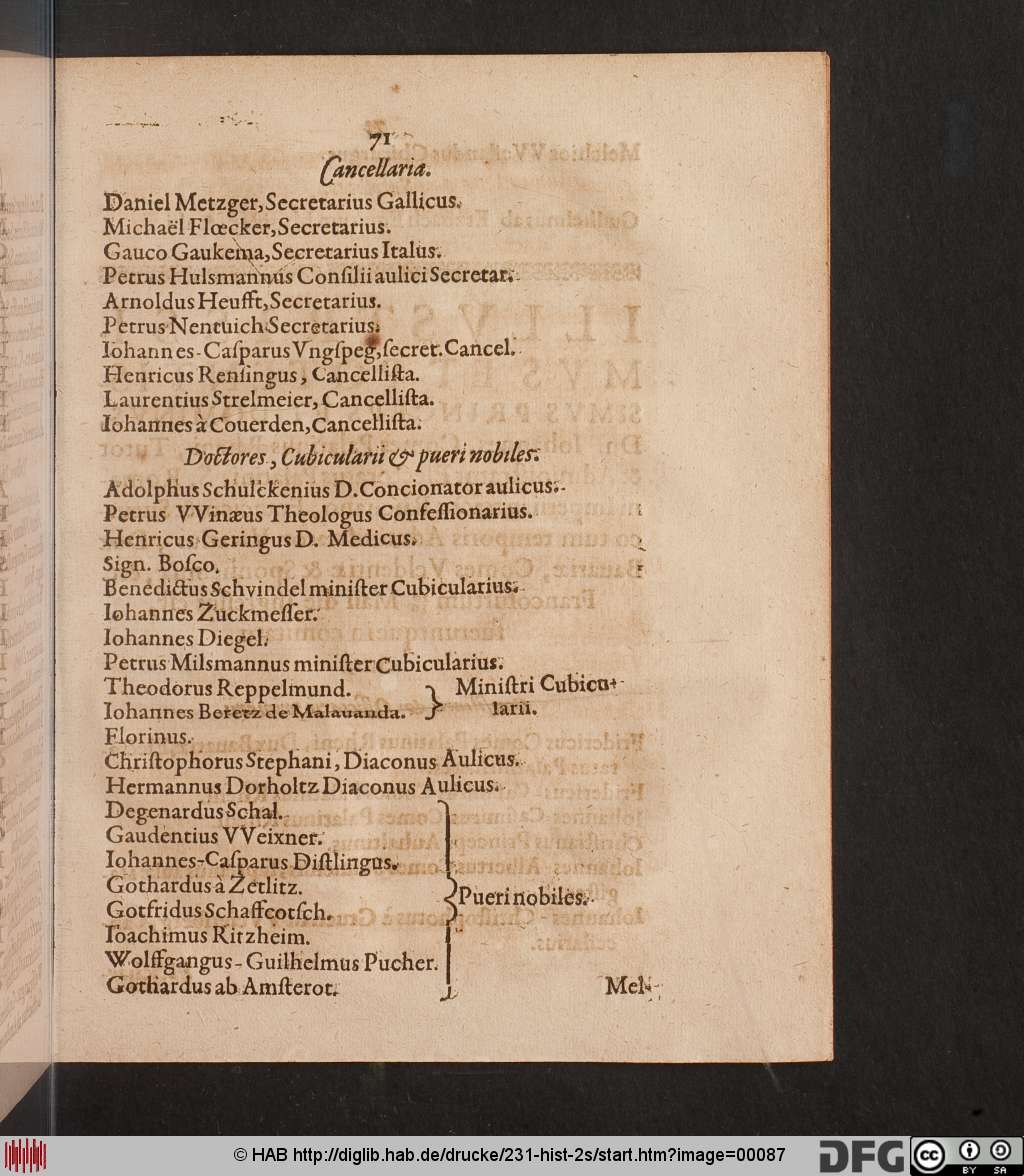 71
Cancellaria.
Daniel Metzger, Secretarius Gallicus.
Michaël Flœcker, Secretarius.
Gauco Gaukema, Secretarius Italus.
Petrus Hulsmannus Conſilii aulici Secretar.
Arnoldus Heufft, Secretarius.
Petrus Nentuich Secretarius.
Iohannes-Caſparus Vngſpeg, ſecret. Cancel.
Henricus Renſingus, Cancelliſta.
Laurentius Strelmeier, Cancelliſta.
Iohannes à Couerden, Cancelliſta.
Doctores, Cubicularii & pueri nobiles.
Adolphus Schulckenius D. Concionator aulicus.
Petrus VVinæus Theologus Confeſſionarius.
Henricus Geringus D. Medicus.
Sign. Boſco.
Benedictus Schvindel miniſter Cubicularius.
Iohannes Zuckmeſſer.
Iohannes Diegel.
Petrus Milsmannus miniſter Cubicularius.
Theodorus Reppelmund. } Miniſtri Cubicu-
Iohannes Beretz de Malauanda. larii.
Florinus.
Chriſtophorus Stephani, Diaconus Aulicus.
Hermannus Dorholtz Diaconus Aulicus.
Degenardus Schal.
Gaudentius VVeixner.
Iohannes-Caſparus Diſtlingus.
Gothardus à Zetlitz.
Gotfridus Schaffcotſch. } Pueri nobiles.
Ioachimus Ritzheim.
Wolffgangus-Guilhelmus Pucher.
Gothardus ab Amſterot.
Mel-
© HAB http://diglib.hab.de/drucke/231-hist-2s/start.htm?image=00087
DFG
cc BY SA